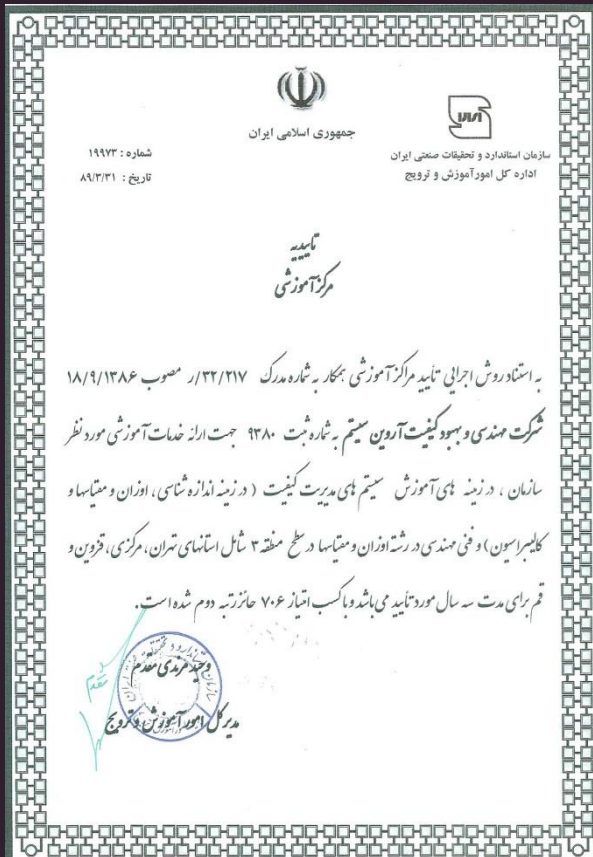 جمهوری اسلامی ایران
سازمان استاندارد و تحقیقات صنعتی ایران
اداره کل امورآموزش و ترویج
شماره : ۱۹۹۷۳
تاریخ : ۸۹/۳/۳۱
تاییدیه
مرکز آموزشی
به استناد روش اجرایی تأیید مراکز آموزشی همکار به شماره مدرک ۳۲/۲۱۷/ر مصوب ۱۸/۹/۱۳۸۶
شرکت مهندسی و بهبود کیفیت آروین سیستم به شماره ثبت ۹۳۸۰ جهت ارائه خدمات آموزشی مورد نظر
سازمان ، در زمینه های آموزش سیستم های مدیریت کیفیت ( در زمینه اندازه شناسی ، اوزان و مقیاسها و
کالیبراسیون ) و فنی مهندسی در رشته اوزان و مقیاسها در سطح منطقه ۳ شامل استانهای تهران، مرکزی، قزوین و
قم برای مدت سه سال مورد تأیید می باشد و با کسب امتیاز ۷۰۶ حائز رتبه دوم شده است.
وحید مرندی مقدم
مدیر کل امور آموزش و ترویج